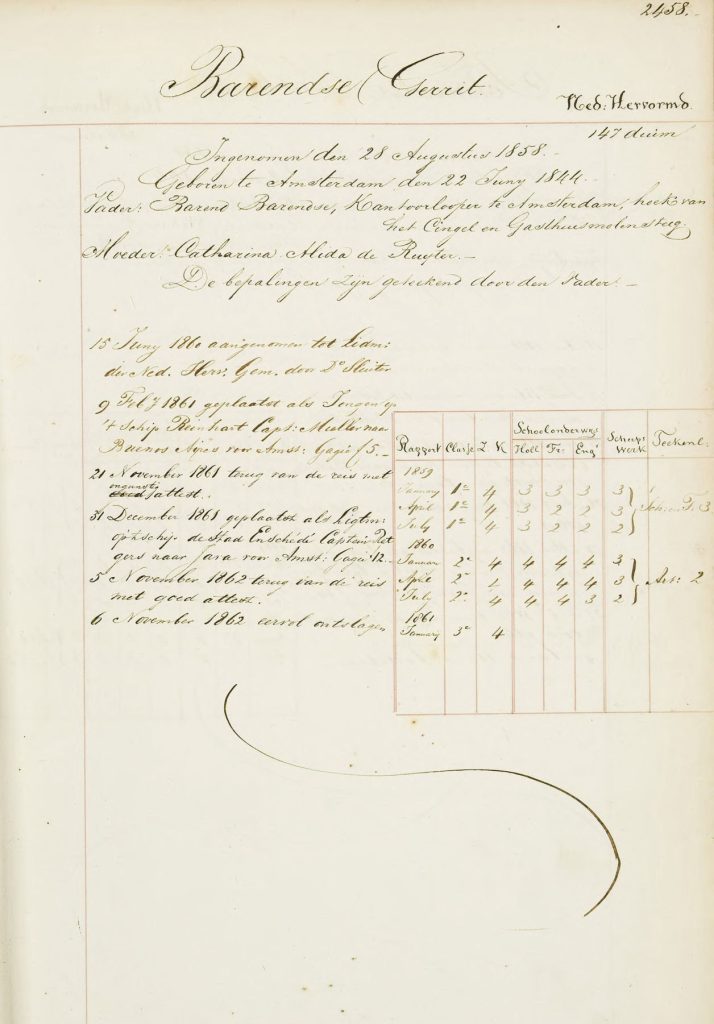 2458.
Barendse Gerrit.
Ned: Hervormd.
147 duim
Ingenomen den 28 Augustus 1858.
Geboren te Amsterdam den 22 Juny 1844.
Vader: Barend Barendse, Kantoorlooper te Amsterdam, hoek van
het Cingel en Gasthuismolensteeg.
Moeder: Catharina Alida de Ruyter.
De bepalingen zijn geteekend door den Vader.
15 Juny 1860 aangenomen tot Lidm:
der Ned. Herv. Gem. door Do Sluiter
9 Feby 1861 geplaatst als Jongen op
't schip Reinhart Capt: Muller naar
Buenos Ayres voor Amst: Gagie ƒ5.-
21 November 1861 terug van de reis met
ongunstig
goed attest.
31 December 1861 geplaatst als Ligtm:
op h. schip de Stad Enschédé Captein
gers naar Java voor Amst: Gagie 12.-
5 November 1862 terug van de reis
met goed attest.
6 November 1862 eervol ontslagen
Rapport Classe Z. K Schoolonderwijs Holl Fr: Eng. Scheeps Werk Teekenl:
1859
January 1e 4 3 3 3 3
April 1e 4 3 2 2 3 Fr 3
July 1e 4 3 2 2 2
1860
Januari 2e 4 4 4 4 3
April 2e 2 4 4 4 3 Art: 2
July 2e 4 4 4 3 2
1861
January 3e 4